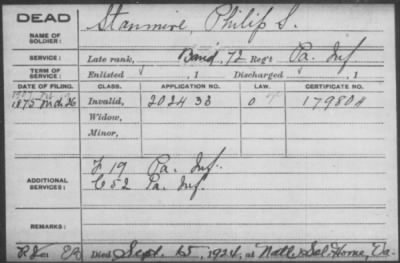 DEAD
NAME OF SOLDIER: Stanmire, Philip S.
SERVICE: Late rank, Band, 72 Reg't Pa. Inf
TERM OF SERVICE: Enlisted , 1 Discharged , 1
DATE OF FILING. CLASS. APPLICATION NO. LAW. CERTIFICATE NO.
1875 Mch 26 Invalid, 202433 0 179808
Widow,
Minor,
F 19 Pa. Inf.
ADDITIONAL SERVICES: C 52 Pa. Inf.
REMARKS:
Died Sept. 15, 1924, at Natl. Sol. Home, Va.